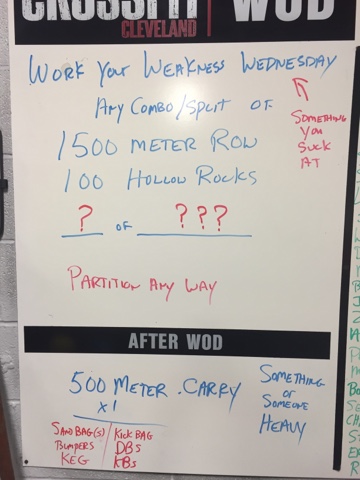 CROSSFIT | WOD
CLEVELAND
WORK YOUR WEAKNESS WEDNESDAY
ANY COMBO/SPLIT OF
SOMETHING
YOU
SUCK
AT
1500 METER ROW
100 HOLLOW ROCKS
? OF ???
PARTITION ANY WAY
AFTER WOD
500 METER CARRY
X1
SOMETHING
OR
SOMEONE
HEAVY
SANDBAG(S) KICKBAG
BUMPERS DBS
KEG KBS